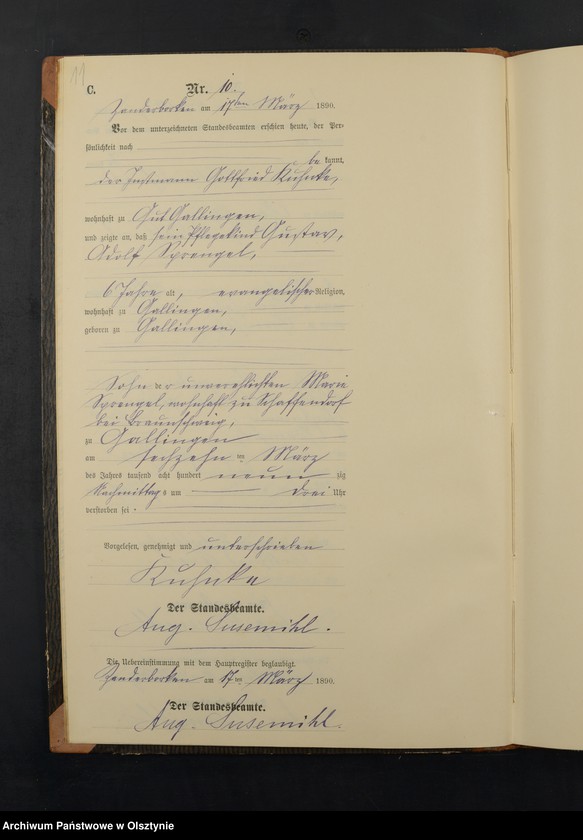 11
C.
Nr. 10.
Zanderborken am 17ten März 1890.
Vor dem unterzeichneten Standesbeamten erschien heute, der Per-
sönlichkeit nach
be kannt,
der Instmann Gottfried Kuhnke,
wohnhaft zu Gut Gallingen,
und zeigte an, daß sein Pflegekind Gustav,
Adolf Sprengel,
6 Jahre alt, evangelischer Religion,
wohnhaft zu Gallingen,
geboren zu Gallingen,
Sohn der unverehlichten Marie
Sprengel, wohnhaft zu Schaffendorf
bei Braunschweig,
zu Gallingen
am sechzehn ten März
des Jahres tausend acht hundert neun zig
Nachmittags um drei Uhr
verstorben sei.
Vorgelesen, genehmigt und unterschrieben
Kuhnke
Der Standesbeamte.
Aug. Susemihl.
Die Uebereinstimmung mit dem Hauptregister beglaubigt.
Zanderborken am 17ten März 1890.
Der Standesbeamte.
Aug. Susemihl.
Archiwum Państwowe w Olsztynie